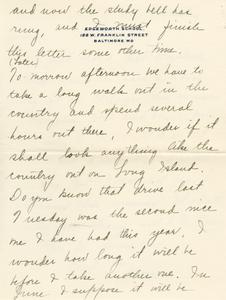 and now the study bell has
rung, and I must finish
EDGEWORTH SCHOOL
122 W. FRANKLIN STREET
BALTIMORE MD
this letter some other time.
(Later)
To morrow afternoon we have to
take a long walk out in the
country and spend several
hours out there. I wonder if it
shall look anything like the
country out on Long Island.
Do you know that drive last
Tuesday was the second nice
one I have had this year. I
wonder how long it will be
before I take another one. In
June I suppose it will be